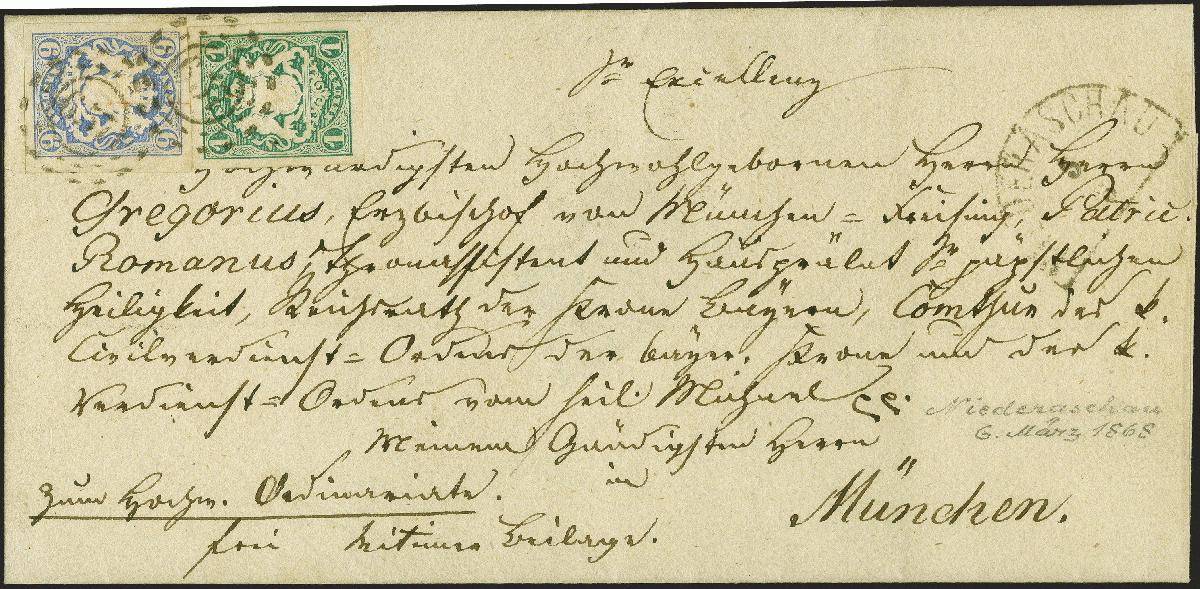 6 6 6 6 1 1 1 1
Sr Excellenz
NIEDERASCHAU
Hochwürdigsten Hochwohlgebornen Herrn Herrn
Gregorius, Erzbischof von München = Freising, Patric.
Romanus, Thronassistent und Hausprälat Sr päpstlichen
Heiligkeit, Reichsrath der Krone Bayern, Comthur des k.
Civilverdienst = Ordens der bayer. Krone und des k.
Verdienst = Ordens vom heil. Michael
Niederaschau
6. März 1868
Meinem Gnädigsten Herrn
zum Hochw. Ordinariate.
in
München.
frei mit einer Beilage.